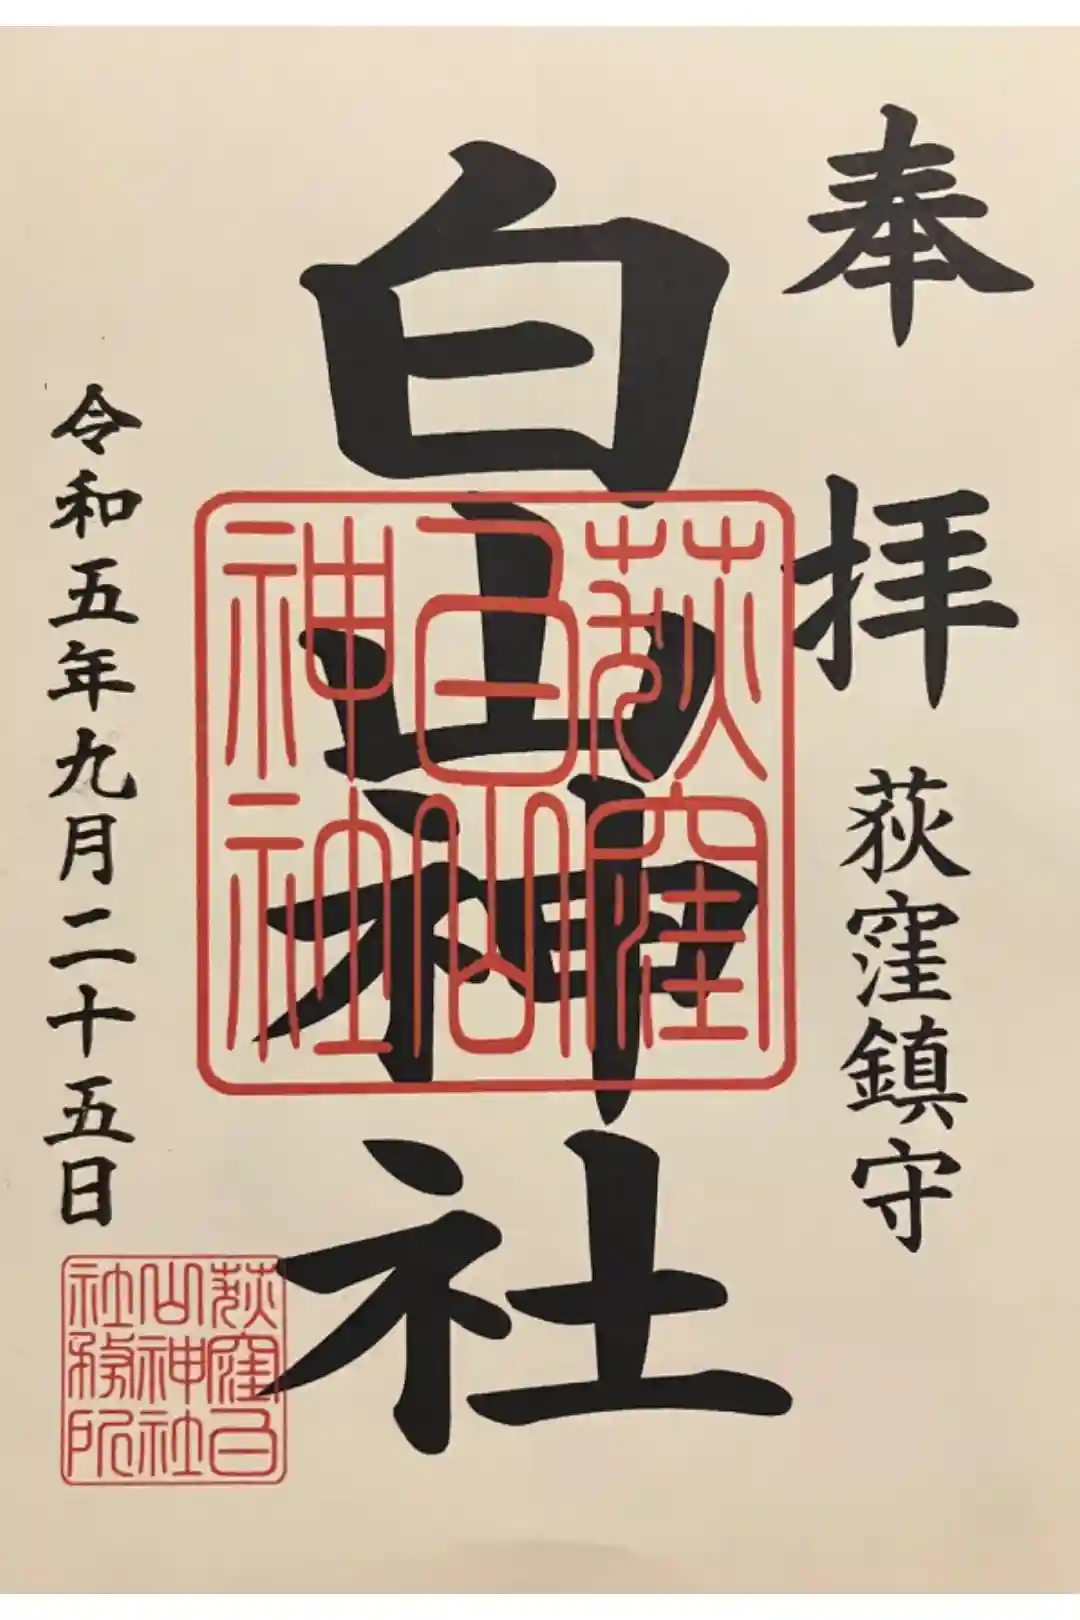 奉拝
荻窪鎮守
白山神社
令和五年九月二十五日
荻窪
白山
神社
荻窪白
山神社
社務所